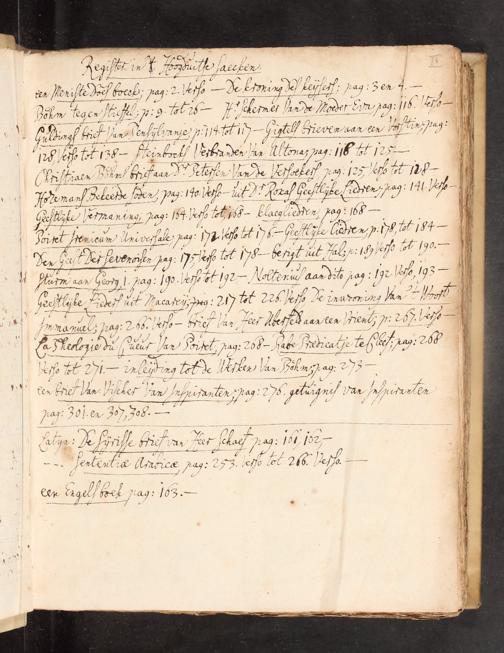 Register in 't Hoogduitse saecken
een Meniste doel boeck; pag: 2. Verso — De kroning des keysers; pag: 3 en 4. —
Böhm tegen Stiefel; p: 9. tot 26 — Van de Moeder Eva, pag: 116. Verso —
brief Van Pensylvanje; p: 114 tot 117 — Gigtels brieven aan een pag:
128 Verso tot 138 — Steinbocks Verbranden Van Altona; pag: 118 tot 125 —
Christiaen brief aan Dr. Petersen Van de pag. 125 Verso tot 128 —
Hotemans Bekeerde Joden, pag: 140 Verso — uit Dr. Geestlyke Liedren; pag: 141. Verso —
Geestlyke Vermaning, pag: 164 Verso tot 168 — klaegliedren, pag: 168 —
Poiret Irenicum Universale pag: 172 Verso tot 176 — Geestlyke liedren, p. 178 tot 184 —
Den Geest Der Sevenoren pag: 175 Verso tot 178 — berigt uit Hal; p: 189 Verso tot 190 —
Sturm aan Georg 1. pag: 190. Verso tot 192 — aan dito pag: 192 Verso, 193 —
Geestlyke uit Macarey, pag: 217 tot 226. Verso De inwoning Van 't Woort
Immanuel, pag: 266. Verso — brief Van Jeer aan een Vrient; p: 267. Verso —
La Theologie du Cueur Van Poiret, pag: 268 — Predicatje te Cleef, pag: 268
Verso tot 271. — inleyding tot de Werken Van Böhm; pag: 273 —
een brief Van Visscher Van Inspiranten; pag: 276. getuignis van Inspiranten
pag: 301. en 307, 308. —
Latyn: De Syrisse brief van Jeer Schaef pag: 161, 162 —
- - - . Sententiæ Arabicæ pag: 253. Verso tot 266. Verso. —
een Engels boek pag: 163. —